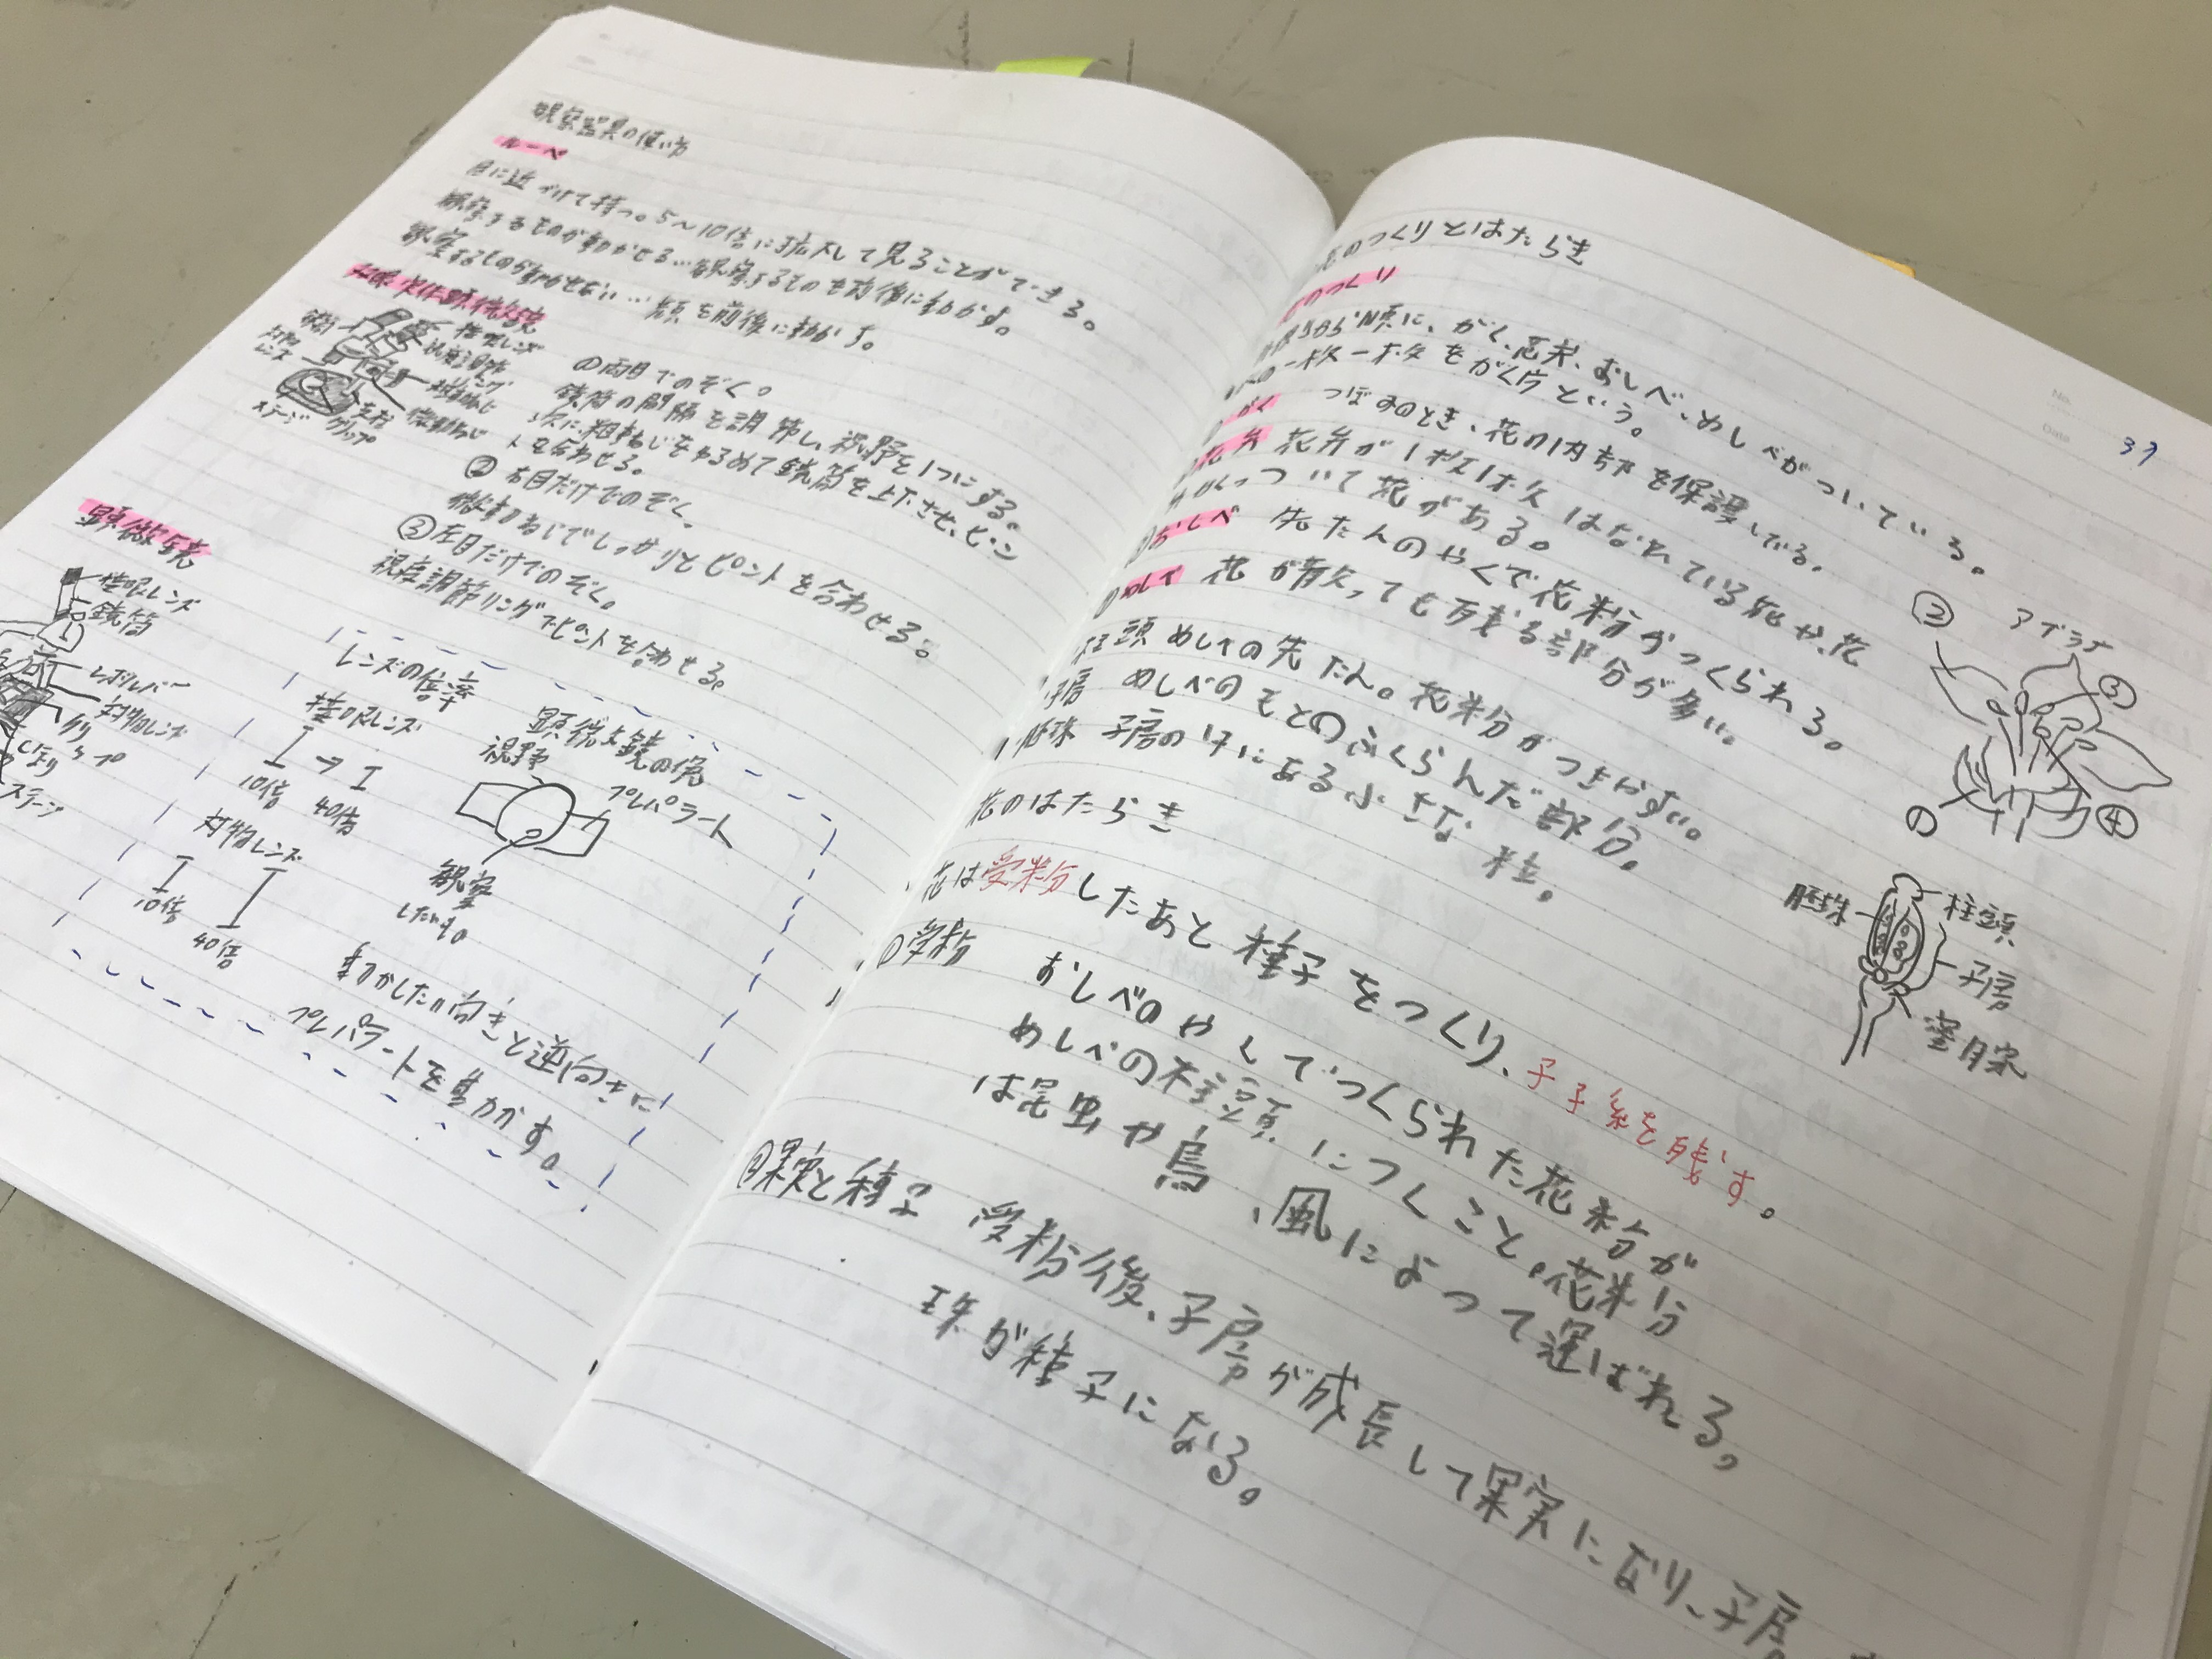 観察器具の使い方
ルーペ
目に近づけて持つ。5〜10倍に拡大して見ることができる。
観察するものが動かせる…観察するものを前後に動かす。
観察するものが動かせない…顔を前後に動かす。
双眼実体顕微鏡
鏡筒
対物レンズ
接眼レンズ
視度調節リング
粗動ねじ
微動ねじ
支柱
クリップ
ステージ
①両目でのぞく。
鏡筒の間隔を調節し、視野を1つにする。
次に粗動ねじをゆるめて鏡筒を上下させ、ピントを合わせる。
②右目だけでのぞく。
微動ねじでしっかりとピントを合わせる。
③左目だけでのぞく。
視度調節リングでピントを合わせる。
顕微鏡
接眼レンズ
鏡筒
レボルバー
対物レンズ
クリップ
しぼり
ステージ
レンズの倍率
接眼レンズ
10倍 → 40倍
対物レンズ
10倍
40倍
顕微鏡の像
視野
プレパラート
観察
したいもの
動かしたい向きと逆向きに
プレパラートを動かす。
37
花のつくりとはたらき
花のつくり
から順に、がく、花弁、おしべ、めしべがついている。
の一枚一枚をがく片という。
がく つぼみのとき、花の内部を保護している。
花弁 花弁が1枚1枚はなれている花や、花
がくっついて花がある。
おしべ 先たんのやくで花粉がつくられる。
めしべ 花が散っても残る部分が多い。
柱頭 めしべの先たん。花粉がつきやすい。
子房 めしべのもとのふくらんだ部分。
胚珠 子房の中にある小さな粒。
② アブラナ
③
①
④
胚珠
柱頭
子房
蜜腺
花のはたらき
花は受粉したあと種子をつくり、子孫を残す。
①受粉 おしべのやくでつくられた花粉が
めしべの柱頭につくこと。花粉
は昆虫や鳥、風によって運ばれる。
②果実と種子 受粉後、子房が成長して果実になり、子房
珠が種子になる。